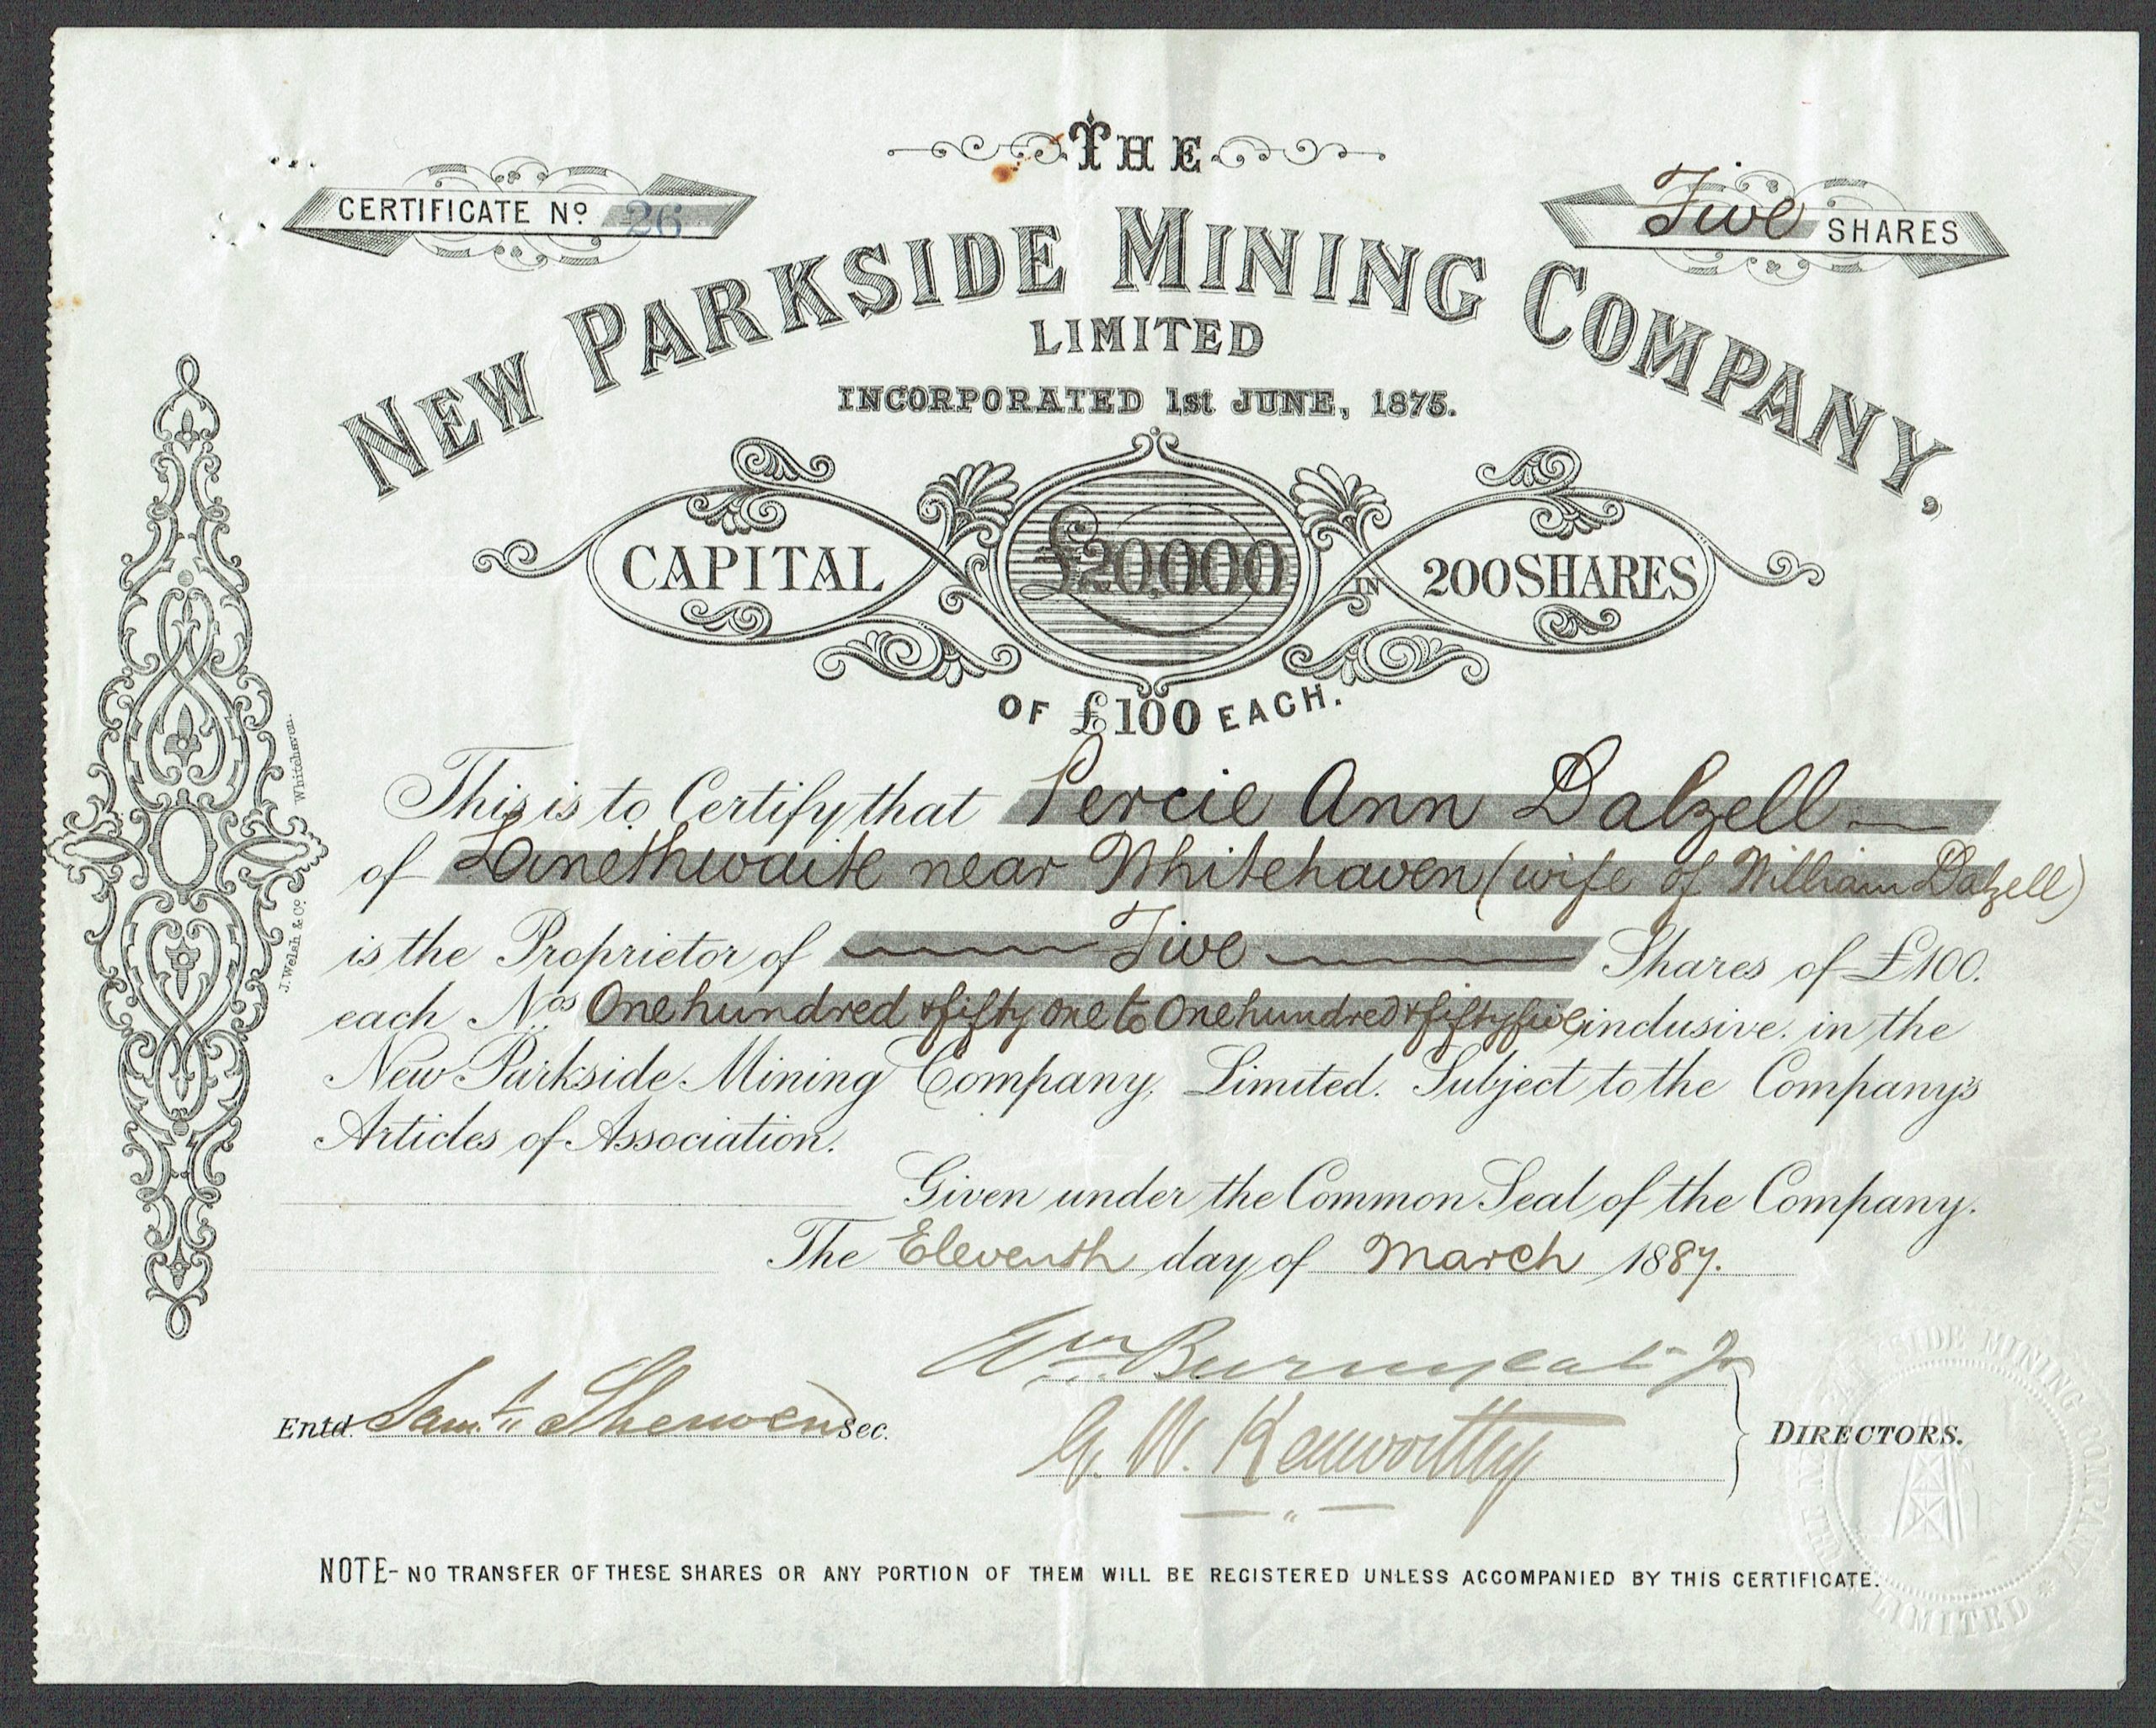 THE
CERTIFICATE Nº 26
Five SHARES
NEW PARKSIDE MINING COMPANY,
LIMITED
INCORPORATED 1st JUNE, 1875.
CAPITAL £20,000 IN 200 SHARES
OF £100 EACH.
This is to Certify that Percie Ann Dalzell
of Lanethwaite near Whitehaven (wife of William Dalzell)
is the Proprietor of Five Shares of £100.
each Nos One hundred & fifty one to One hundred & fifty five inclusive. in the
New Parkside Mining Company, Limited. Subject to the Company's
Articles of Association.
Given under the Common Seal of the Company.
The Eleventh day of March 1887.
Wm Burnyeat Jr
Entd. Saml. Sherwen Sec.
G. W. Kenworthy
DIRECTORS.
NOTE- NO TRANSFER OF THESE SHARES OR ANY PORTION OF THEM WILL BE REGISTERED UNLESS ACCOMPANIED BY THIS CERTIFICATE.
J. Welsh & Co. Whitehaven.
THE NEW PARKSIDE MINING COMPANY LIMITED